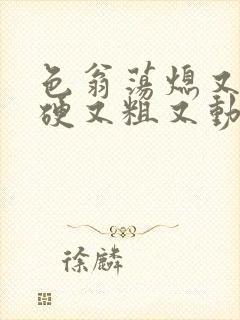 色翁荡熄又
硬又粗又動
徐麟